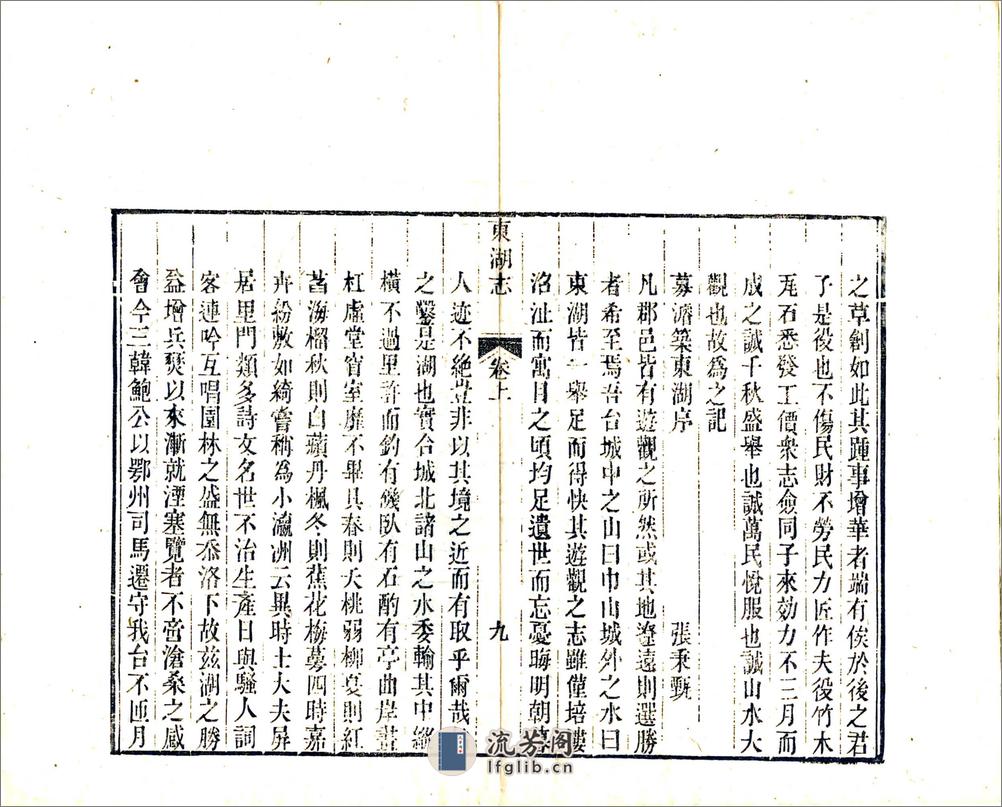 之草創如此其踵事增華者端有俟於後之君
子是役也不傷民財不勞民力匠作夫役竹木
瓦石悉發工價衆志僉同子來効力不三月而
成之誠千秋盛舉也誠萬民悅服也誠山水大
觀也故爲之記
募濬築東湖序
張秉甄
凡郡邑皆有遊觀之所然或其地遼遠則選勝
者希至焉吾台城中之山曰巾山城外之水曰
東湖皆一舉足而得快其遊觀之志雖僅培塿
洛沚而寓目之頃均足遺世而忘憂晦明朝
東湖志
卷上
九
人迹不絶豈非以其境之近而有取乎爾哉
之鑿是湖也實合城北諸山之水委輸其中
橫不過里許而釣有磯臥有石酌有亭曲岸
杠虛堂窅室靡不畢具春則夭桃弱柳夏則紅
菡海榴秋則白蘋丹楓冬則蕉花梅萼四時嘉
卉紛敷如綺嘗稱為小瀛洲云異時士大夫屏
居里門類多詩文名世不治生產日與騷人詞
客連吟互唱園林之盛無忝洛下故茲湖之勝
益增兵燹以來漸就湮塞覽者不啻滄桑之感
會今三韓鮑公以鄂州司馬遷守我台不匝月
流芳阁
lfglib.cn